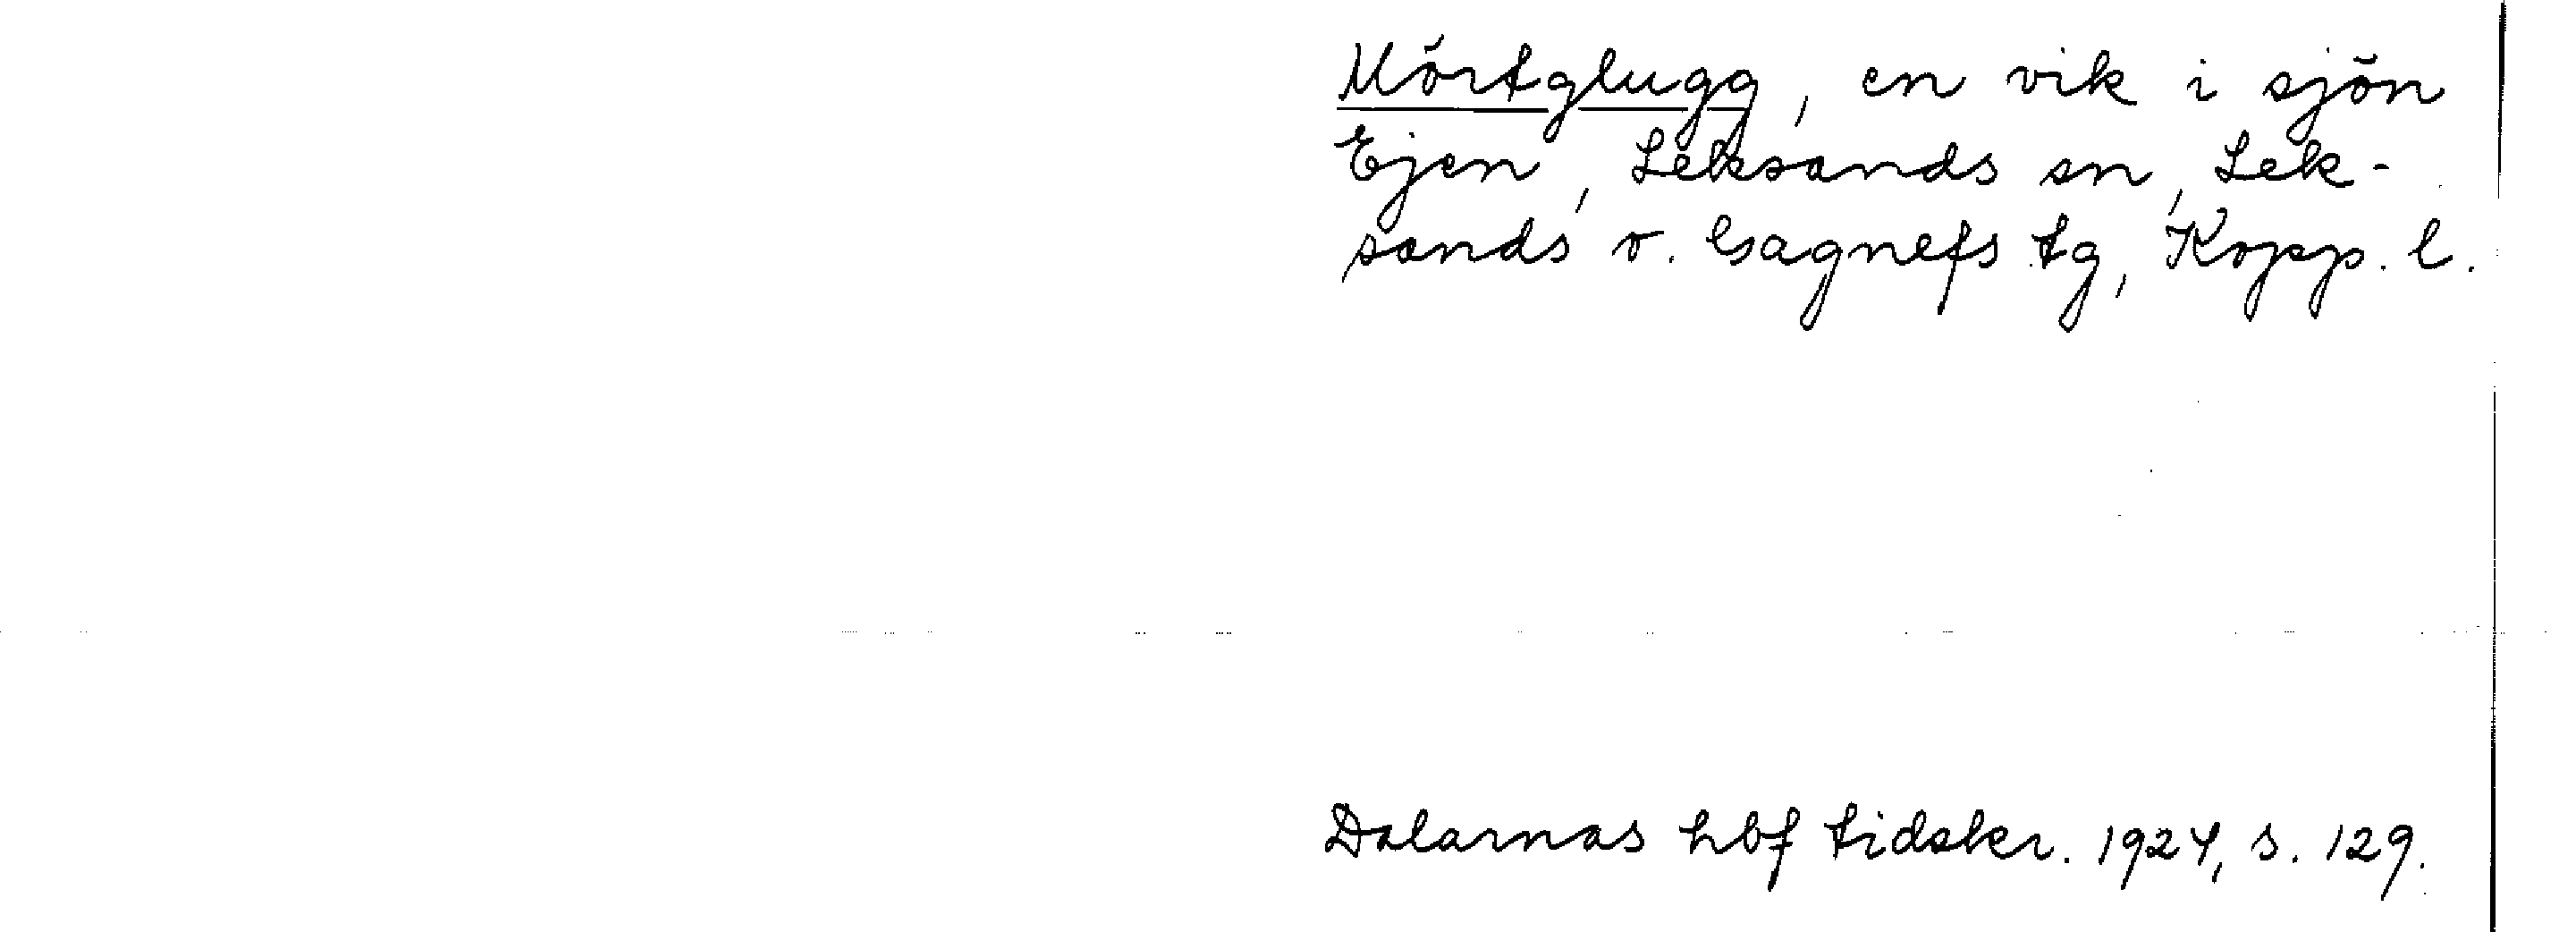 Mörtglugg, en vik i sjön
Ejen, Leksands sn, Lek-
sands o. Gagnefs tg, Kopp. l.
Dalarnas hbf tidskr. 1924, s. 129.